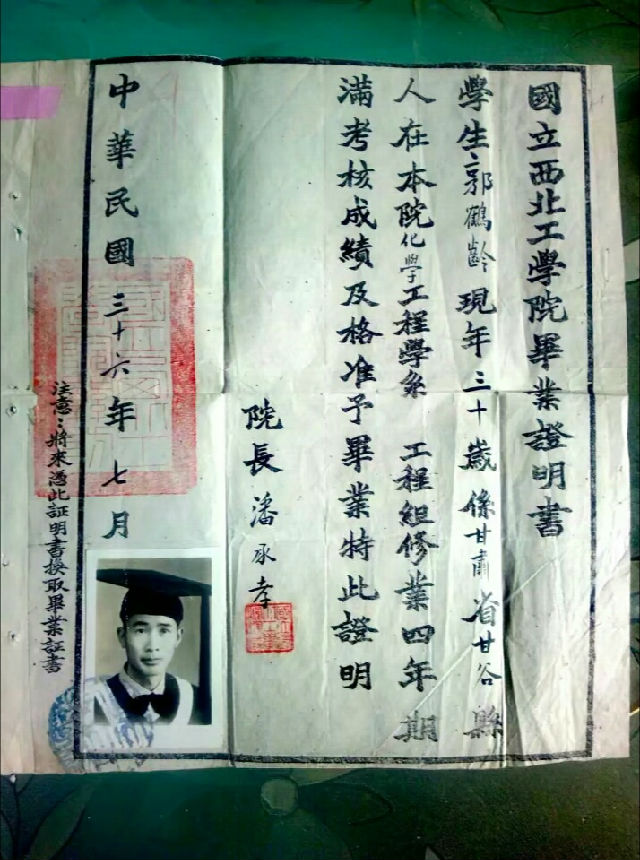 國立西北工學院畢業證明書
學生郭鶴齡現年三十歲係甘肅省甘谷縣
人在本院化學工程學系 工程組修業四年期
滿考核成績及格准予畢業特此證明
院長潘承孝
中華民國三十六年七月
注意：將來憑此証明書換取畢業証書